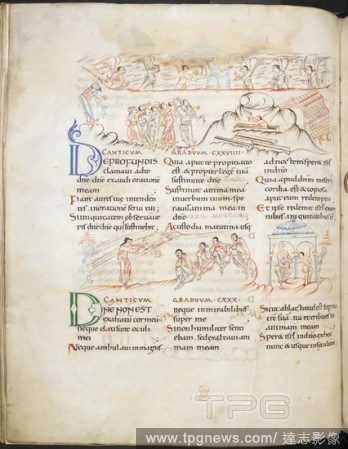 CANTICUM GRADUUM CXXVIIII
DE PROFUNDIS
clamavi ad te
dne dne exaudi orationem
meam
Fiant aures tue intenden
tes inorationē servi tui
Si iniquitatem observave
ris dne dne quis sustinebit;
Quia apud te propitiatio
est & propter legē tuā
sustinui te dne
Sustinuit anima mea
in verbum tuum spe
ravit anima mea in
dno
A custodia matutina usq;
ad noctem speret isrl
in dno
Quia apud dnm miseri
cordia est & copiosa
apud eum redemptio
Et ipse redimet isrl ex om
nibus iniquitatibus
CANTICUM GRADUUM CXXX
DNE NON EST
exaltatum cor meū
neque elati sunt oculi
mei
Neque ambulavi in magnis
neque in mirabilibus
super me
Si non humiliter senti
ebam sed exaltavi ani
mam meam
Sicut ablactatus est super ma
tre sua ita retribues in
animam meam
Speret isrl in dno ex hoc
nunc & usque in seculum
TPG
www.tpgnews.com / 達志影像